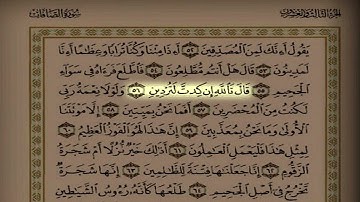 سورة الصافات
الجزء الثالث والعشرون
يقول أءنك لمن المصدقين ٥٢ أءذا متنا وكنا ترابا وعظما أءنا
لمدينون ٥٣ قال هل أنتم مطلعون ٥٤ فاطلع فرءاه في سواء
الجحيم ٥٥ قال تالله إن كدت لتردين ٥٦ ولولا نعمة ربي
لكنت من المحضرين ٥٧ أفما نحن بميتين ٥٨ إلا موتتنا
الأولى وما نحن بمعذبين ٥٩ إن هذا لهو الفوز العظيم ٦٠
لمثل هذا فليعمل العملون ٦١ أذلك خير نزلا أم شجرة
الزقوم ٦٢ إنا جعلنها فتنة للظلمين ٦٣ إنها شجرة
تخرج في أصل الجحيم ٦٤ طلعها كأنه رءوس الشيطين